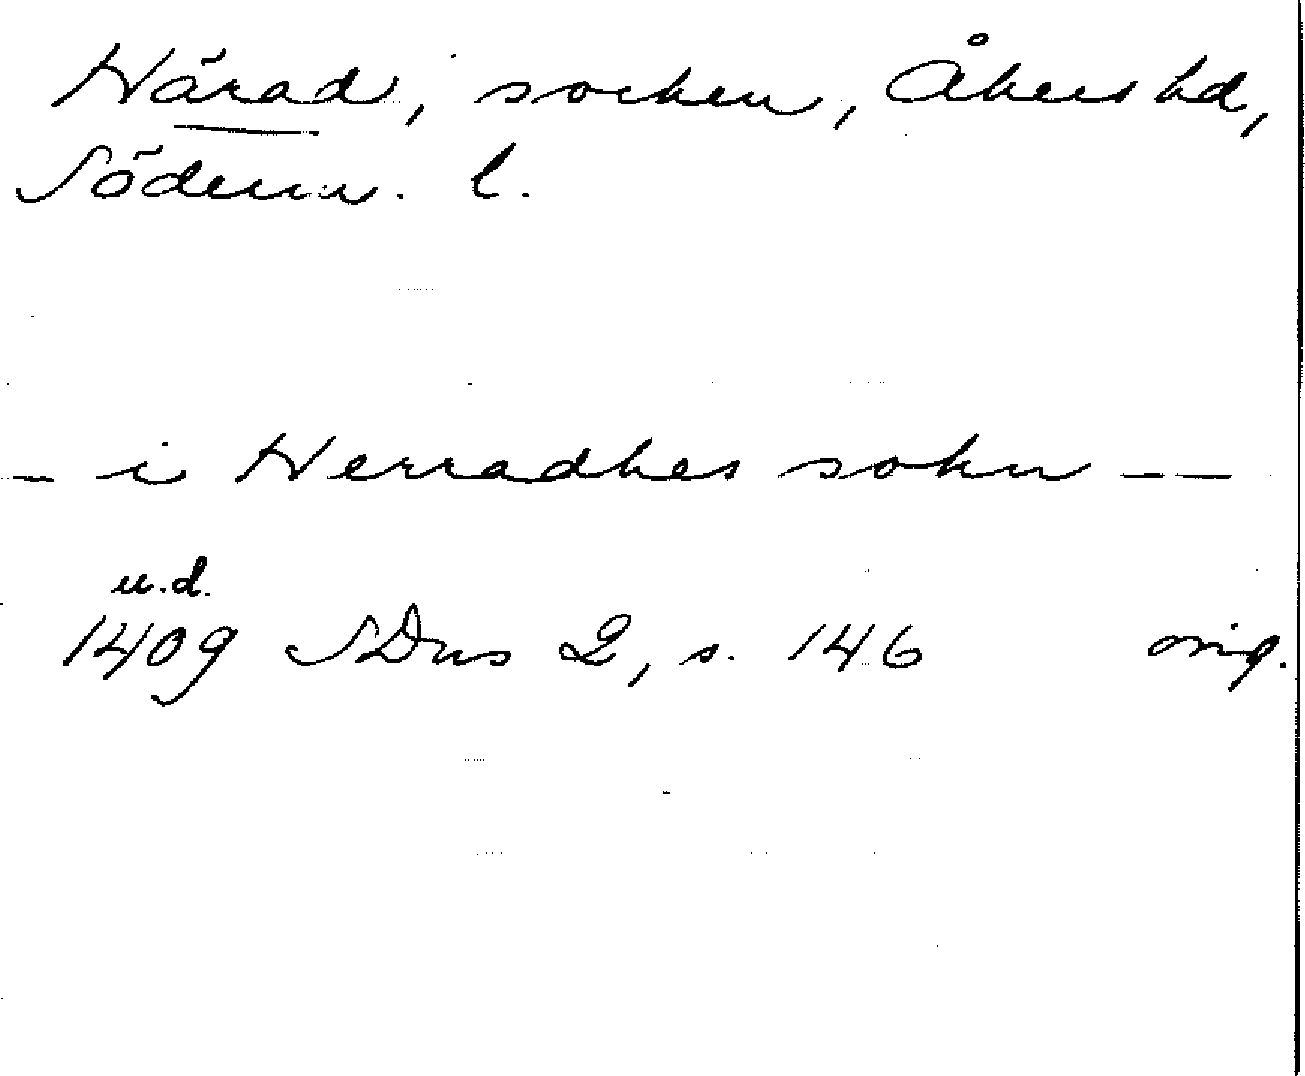 Härad, socken, Åkers hd,
Söderm. l.
- i Herradhes sokn --
u.d.
1409 SDns 2, s. 146 orig.